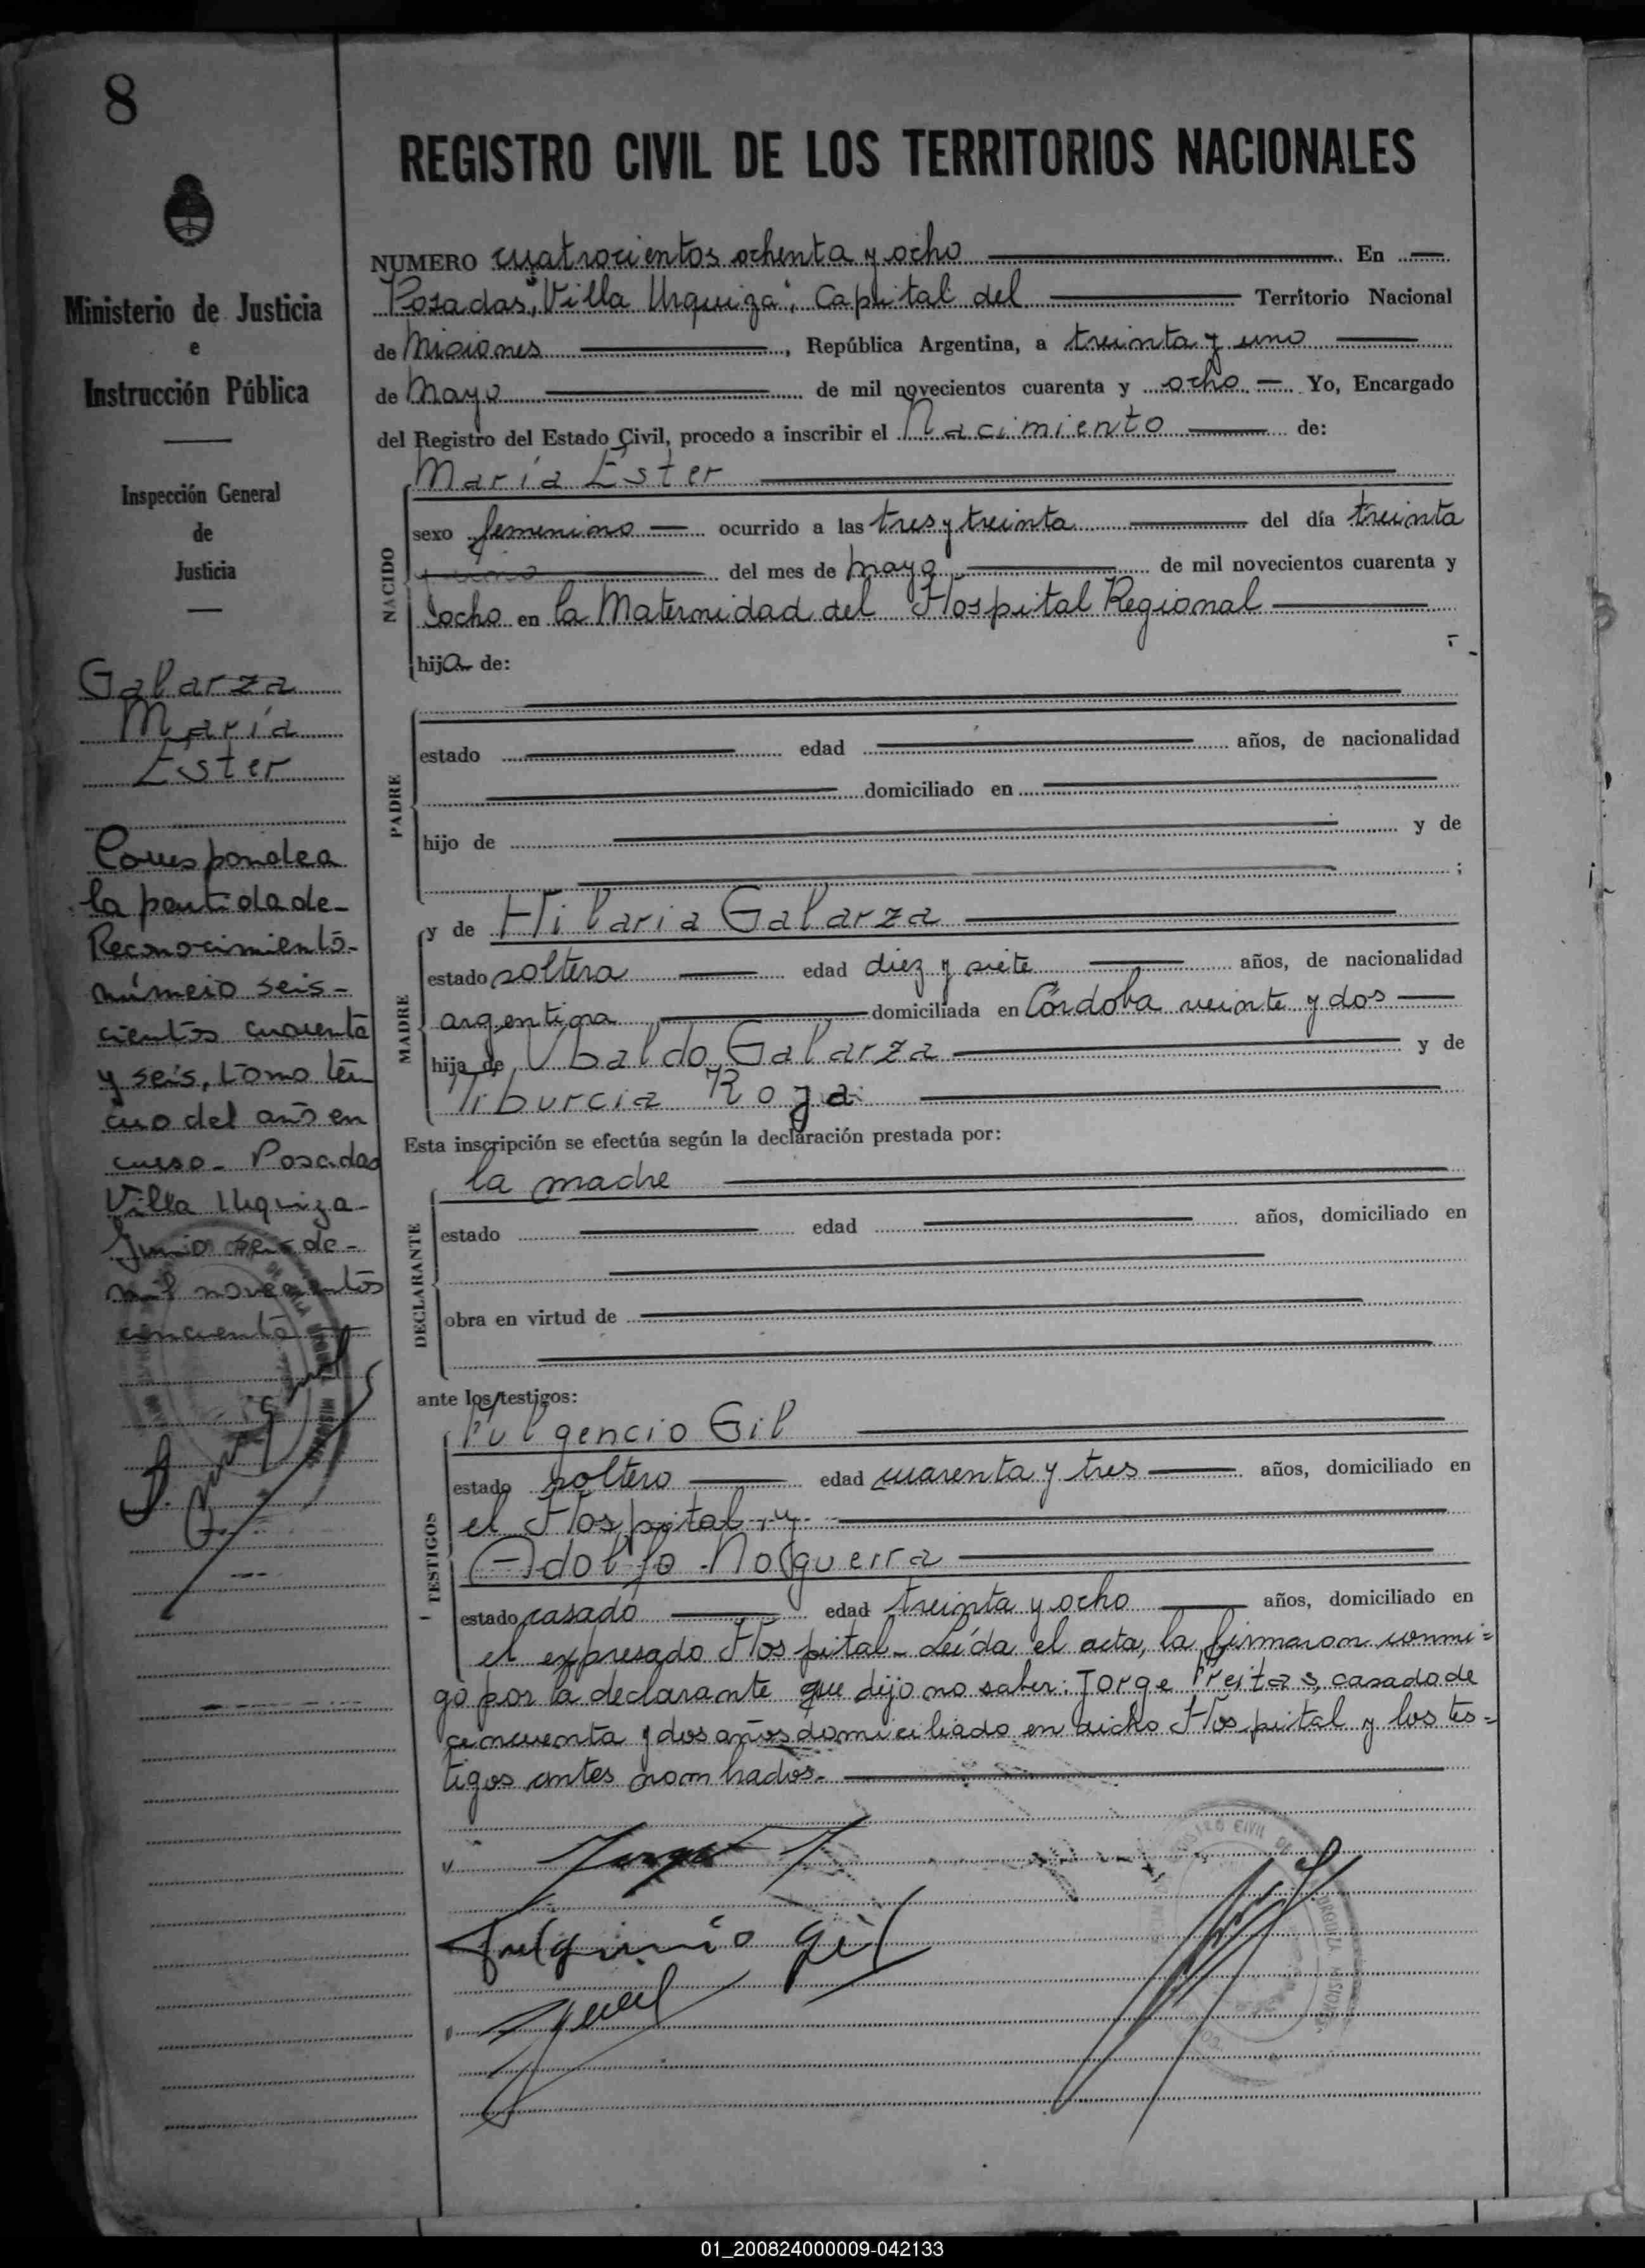 8
REGISTRO CIVIL DE LOS TERRITORIOS NACIONALES
Ministerio de Justicia
e
Instrucción Pública
Inspección General
de
Justicia
Galarza
María
Ester
Corresponde a
la partida de-
Reconocimiento-
número seis-
cientos cuarenta
y seis, tomo ter
cero del año en
curso- Posadas
Villa Urquiza-
Junio seis de-
mil novecientos
cincuenta
NUMERO cuatrocientos ochenta y ocho En
Posadas, "Villa Urquiza", Capital del Territorio Nacional
de Misiones, República Argentina, a treinta y uno
de Mayo de mil novecientos cuarenta y ocho Yo, Encargado
del Registro del Estado Civil, procedo a inscribir el Nacimiento de:
NACIDO
María Ester
sexo femenino ocurrido a las tres y treinta del día treinta
y uno del mes de mayo de mil novecientos cuarenta y
ocho en la Maternidad del Hospital Regional
hija de:
PADRE
estado edad años, de nacionalidad
domiciliado en
hijo de y de
;
MADRE
y de Hilaria Galarza
estado soltera edad diez y siete años, de nacionalidad
argentina domiciliada en Córdoba veinte y dos
hija de Ubaldo Galarza y de
Tiburcia Roja
Esta inscripción se efectúa según la declaración prestada por:
DECLARANTE
la madre
estado edad años, domiciliado en
obra en virtud de
ante los testigos:
TESTIGOS
Fulgencio Gil
estado soltero edad cuarenta y tres años, domiciliado en
el Hospital y
Adolfo Norguerra
estado casado edad treinta y ocho años, domiciliado en
el expresado Hospital- Leída el acta, la firmaron conmi=
go por la declarante que dijo no saber: Jorge Freitas, casado de
cincuenta y dos años domiciliado en dicho Hospital y los tes=
tigos antes nombrados.
Jorge F
Fulgencio Gil
01_200824000009-042133